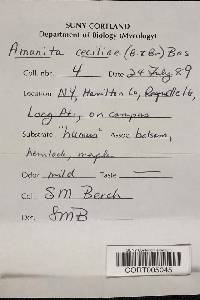 SUNY CORTLAND
Department of Biology (Mycology)
Amanita ceciliae (B. & Br.) Bas
Coll. nbr. 4 Date 24 July 89
Location NY, Hamilton Co, Raquette Lk,
Long Pt., on campus
Substrate "humus" Assoc balsam,
hemlock, maple
Odor mild Taste —
Col. SM Berch
Det. SMB
CORT005045